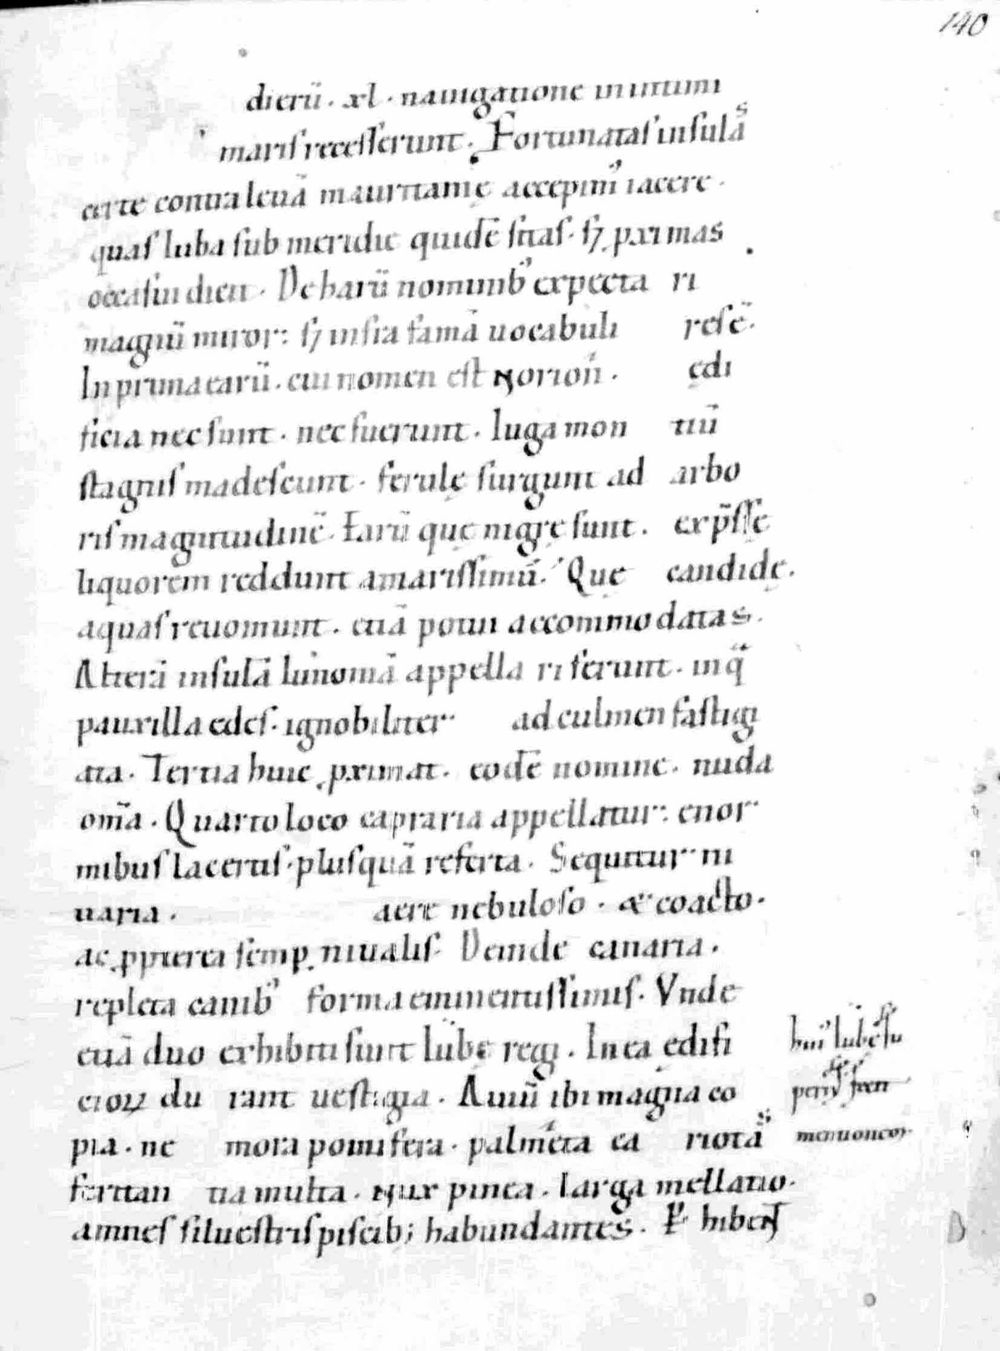 140
dierū · xl · nauigatione in intimi
maris recesserunt · Fortunatas insulas
certe contra leuā mauritanię accepim' iacere ·
quas Iuba sub meridie quidē sitas · sꝫ ꝓximas
occasui dicit · De harū nominib' expecta ri
magnū miror: sꝫ infra famā uocabuli res ē·
In prima earū · cui nomen est Norion · ędi
ficia nec sunt · nec fuerunt · Iuga mon tiū
stagnis madescunt · ferulę surgunt ad arbo
ris magnitudinē· Earū quę nigrę sunt · exp̄ssę
liquorem reddunt amarissimū· Quę candidę·
aquas reuomunt · etiā potui accommodatas ·
Alterā insulā Iunoniā appella ri ferunt · in q̄
pauxilla edes · ignobiliter ad culmen fastigi
ata · Tertia huic ꝓximat · eodē nomine · nuda
om̄ia · Quarto loco capraria appellatur: enor
mibus lacertis · plusquā referta · Sequitur ni
uaria · aere nebuloso · & coacto ·
ac ꝓpterea semꝑ niualis· Deinde canaria ·
repleta canib' forma eminentissimis · Vnde
etiā duo exhibiti sunt Iubę regi · In ea edifi
cioꝝ du rant uestigia · Auiū ibi magna co
pia · ne mora pomifera · palmeta ca riotas
ferentia multa · Nux pinea · larga mellatio·
amnes siluestris piscib; habundantes ·